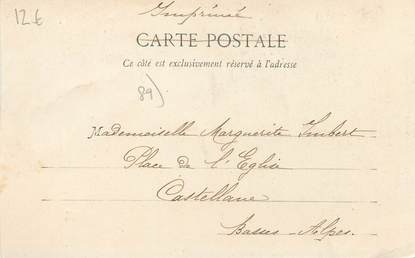 12€
Imprimé
CARTE POSTALE
Ce côté est exclusivement réservé à l'adresse
89)
Mademoiselle Marguerite Imbert
Place de l'Eglise
Castellane
Basses-Alpes.